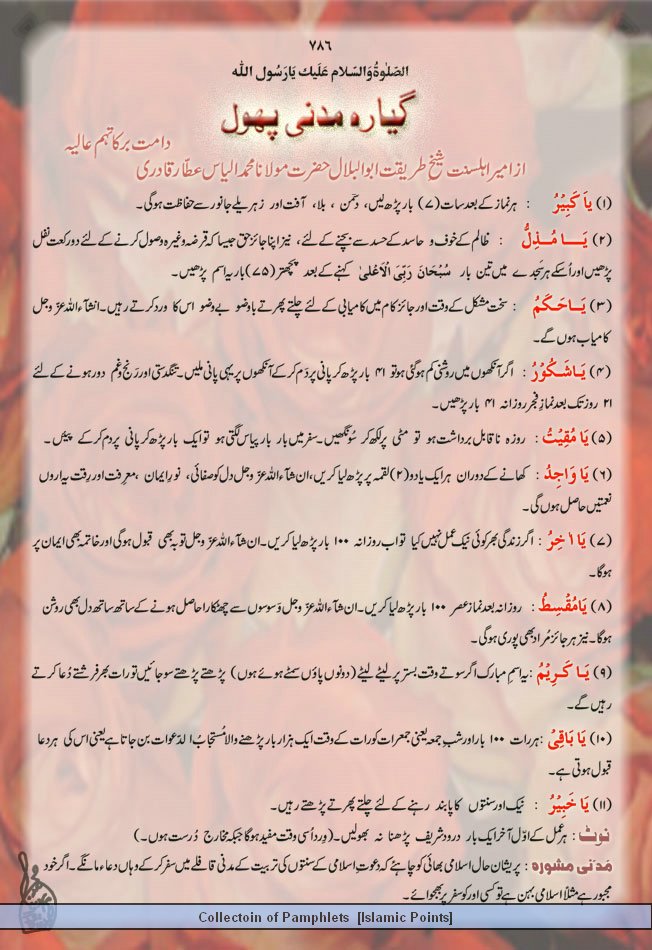 ۷۸۶
الصَّلٰوۃُ وَالسَّلام عَلَیْكَ یَارَسُول اللّٰه
گیارہ مدنی پھول
دامت برکاتہم عالیہ
از امیر اہلسنت شیخِ طریقت ابوالبلال حضرت مولانا محمد الیاس عطّار قادری
(۱) یَا کَبِیْرُ : ہر نماز کے بعد سات (۷) بار پڑھ لیں، دشمن، بلا، آفت اور زہریلے جانور سے حفاظت ہوگی۔
(۲) یَا مُذِلُّ : ظالم کے خوف و حاسد کے حسد سے بچنے کے لئے، نیز اپنا جائز حق جیسا کہ قرضہ وغیرہ وصول کرنے کے لئے دو رکعت نفل
پڑھیں اور اُسکے ہر سجدے میں تین بار سُبْحَانَ رَبِّیَ الْاَعْلیٰ کہنے کے بعد پچھتر (۷۵) بار یہ اسم پڑھیں۔
(۳) یَا حَکَمُ : سخت مشکل کے وقت اور جائز کام میں کامیابی کے لئے چلتے پھرتے باوضو بے وضو اس کا ورد کرتے رہیں۔ انشاءاللہ عزّ وجل
کامیاب ہوں گے۔
(۴) یَا شَکُوْرُ : اگر آنکھوں میں روشنی کم ہوگئی ہو تو ۴۱ بار پڑھ کر پانی پر دَم کر کے آنکھوں پر یہی پانی ملیں۔ تنگدستی اور رنج و غم دور ہونے کے لئے
۲۱ روز تک بعد نمازِ فجر روزانہ ۴۱ بار پڑھیں۔
(۵) یَا مُقِیْتُ : روزہ ناقابل برداشت ہو تو مٹی پر لکھ کر سُونگھیں۔ سفر میں بار بار پیاس لگتی ہو تو ایک بار پڑھ کر پانی پر دم کر کے پیئں۔
(۶) یَا وَاجِدُ : کھانے کے دوران ہر ایک یا دو (۲) لقمہ پر پڑھ لیا کریں، ان شاءاللہ عزّ وجل دل کو صفائی، نورِ ایمان، معرفت اور رِقت یہ اروں
نعمتیں حاصل ہوں گی۔
(۷) یَا اٰخِرُ : اگر زندگی بھر کوئی نیک عمل نہیں کیا تو اب روزانہ ۱۰۰ بار پڑھ لیا کریں۔ ان شاءاللہ عزّ وجل توبہ بھی قبول ہوگی اور خاتمہ بھی ایمان پر
ہوگا۔
(۸) یَا مُقْسِطُ : روزانہ بعد نماز عصر ۱۰۰ بار پڑھ لیا کریں۔ ان شاءاللہ عزّ وجل وَسوسوں سے چھٹکارا حاصل ہونے کے ساتھ ساتھ دل بھی روشن
ہوگا۔ نیز ہر جائز مُراد بھی پوری ہوگی۔
(۹) یَا کَرِیْمُ : یہ اسمِ مبارک اگر سوتے وقت بستر پر لیٹے لیٹے (دونوں پاؤں سمٹے ہوئے ہوں) پڑھتے پڑھتے سو جائیں تو رات بھر فرشتے دُعا کرتے
رہیں گے۔
(۱۰) یَا بَاقِیُ : ہر رات ۱۰۰ بار اور شبِ جمعہ یعنی جمعرات کو رات کے وقت ایک ہزار بار پڑھنے والا مُستجابُ الدّعوات بن جاتا ہے یعنی اس کی ہر دعا
قبول ہوتی ہے۔
(۱۱) یَا خَبِیْرُ : نیک اور سنتوں کا پابند رہنے کے لئے چلتے پھرتے پڑھتے رہیں۔
نوٹ : ہر عمل کے اوّل آخر ایک بار درود شریف پڑھنا نہ بھولیں۔ (وِرد اُسی وقت مفید ہوگا جبکہ مخارج دُرست ہوں۔)
مَدَنی مشورہ : پریشان حال اسلامی بھائی کو چاہئے کہ دعوتِ اسلامی کے سنتوں کی تربیت کے مدنی قافلے میں سفر کر کے وہاں دعاء مانگے۔ اگر خود
مجبور ہے مثلاً اسلامی بہن ہے تو کسی اور کو سفر پر بھجوائے۔
Collectoin of Pamphlets [Islamic Points]